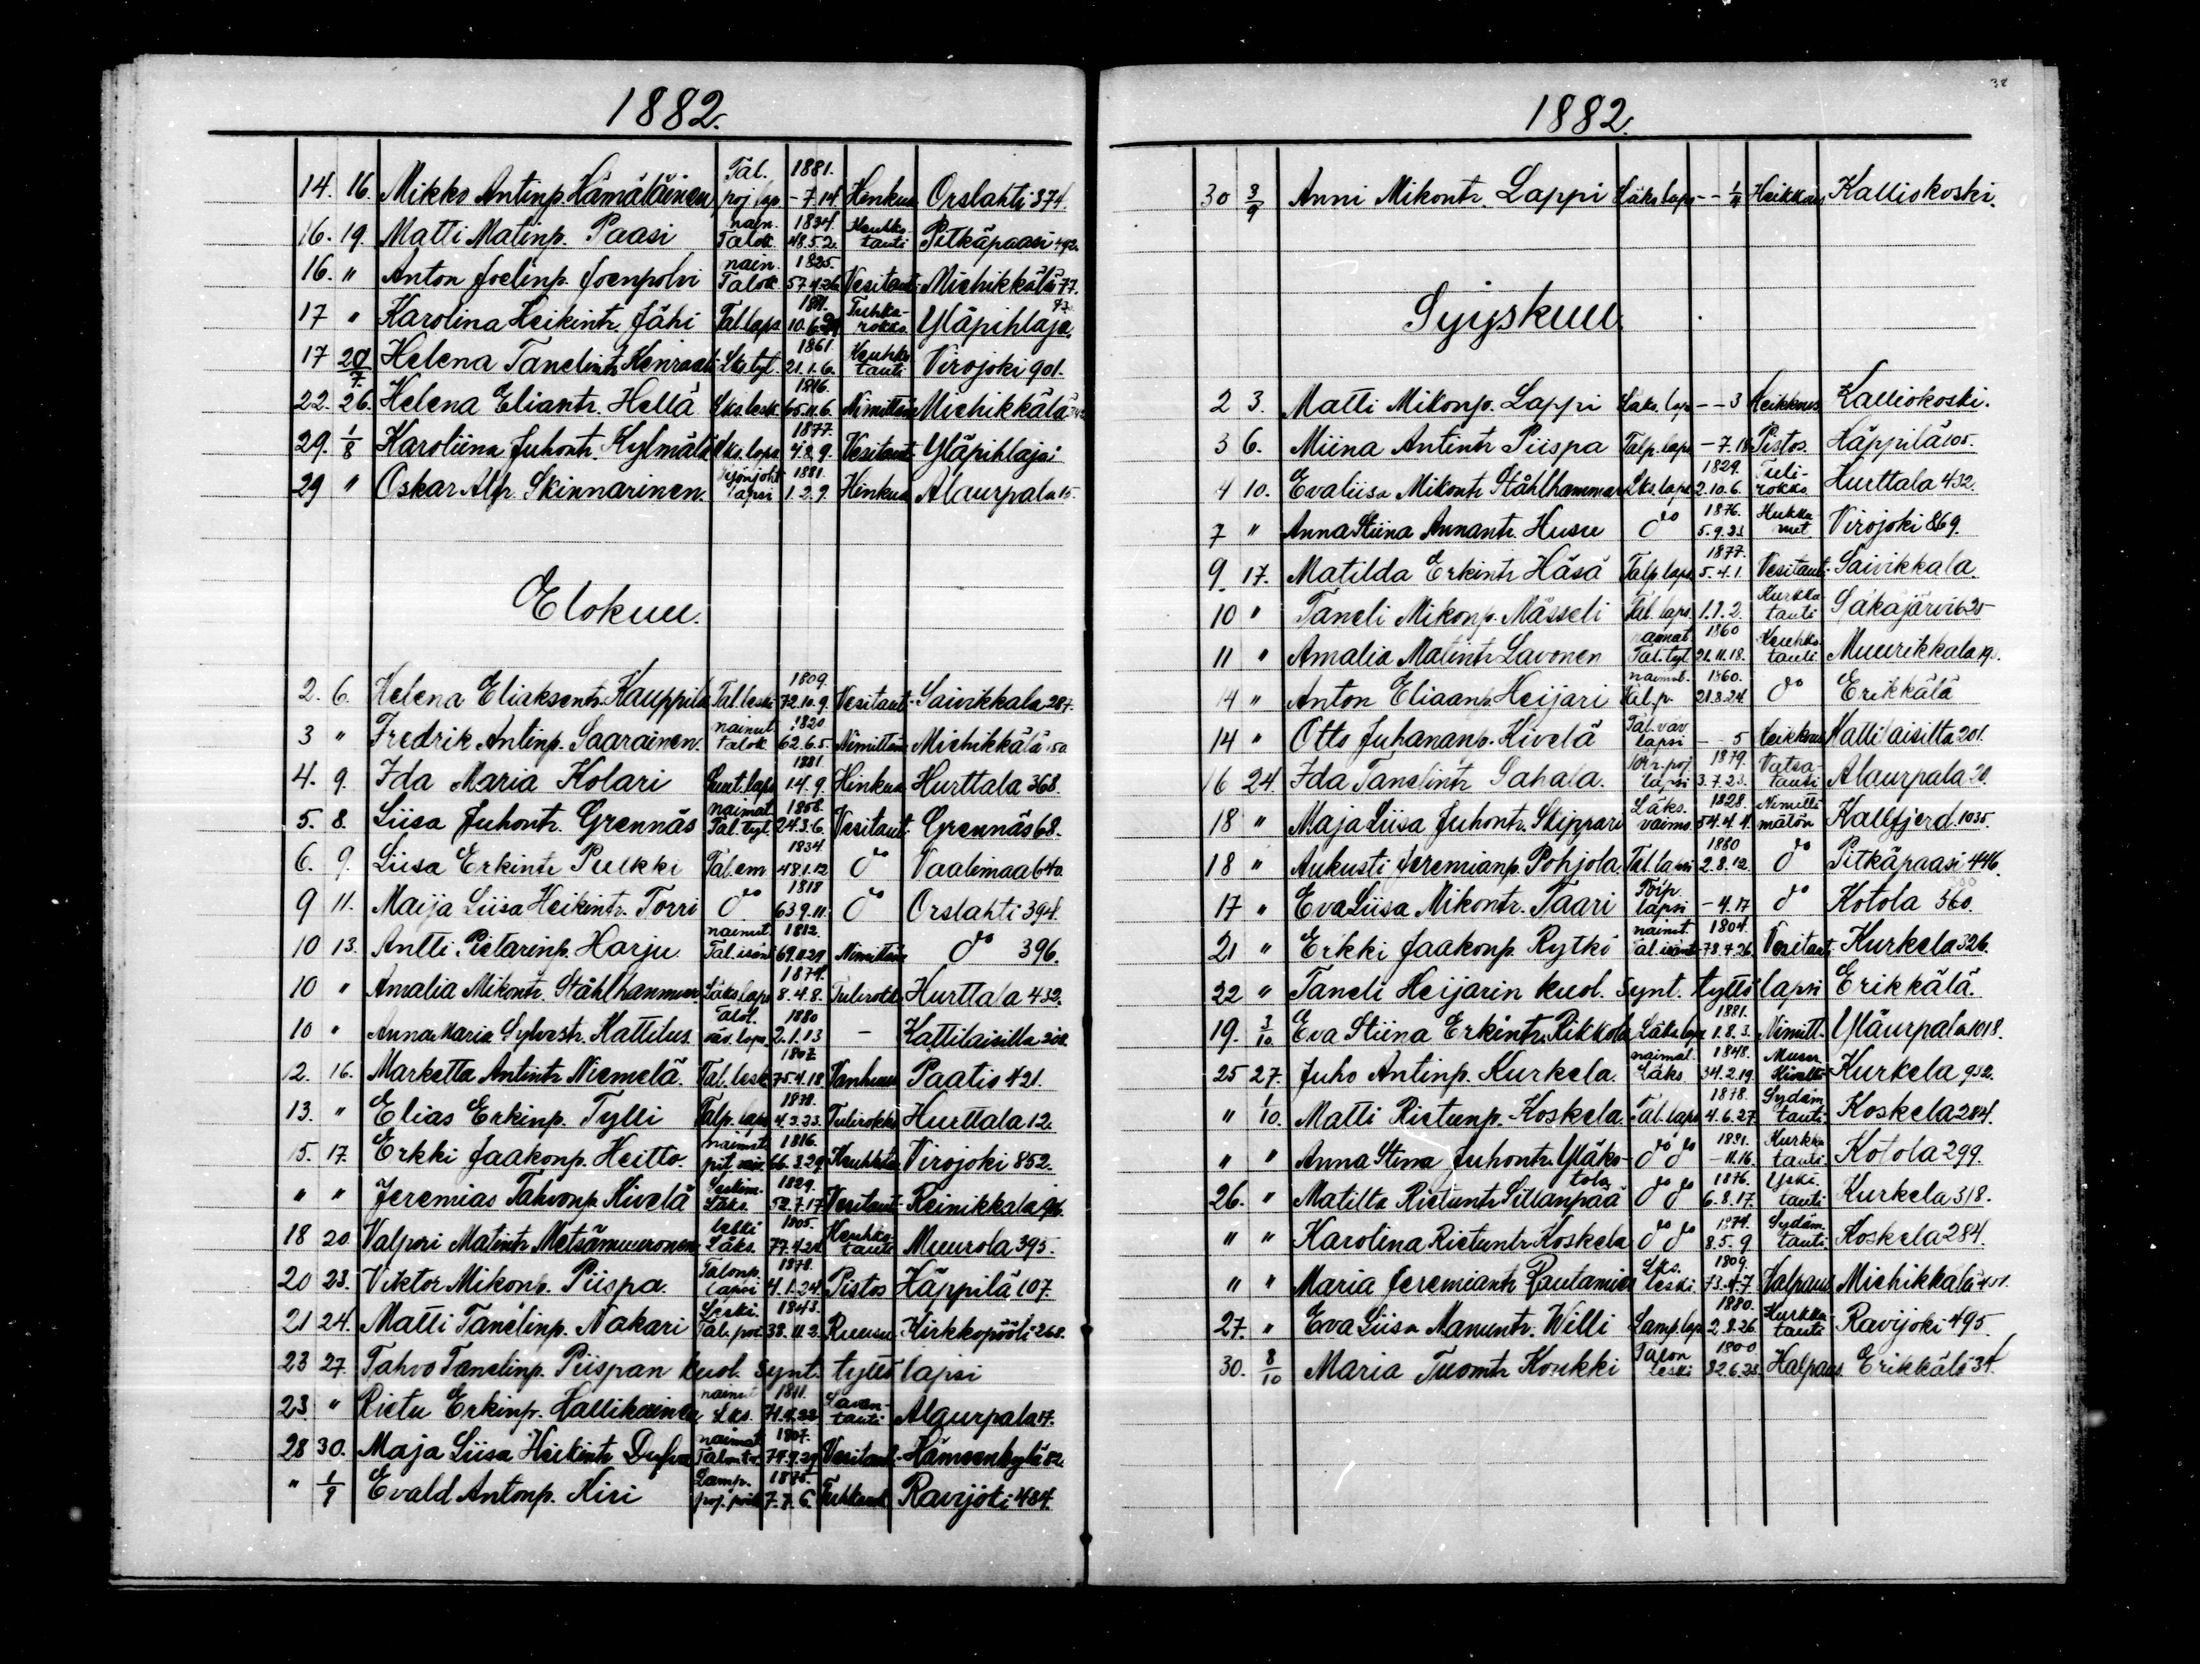 1882.
14. 16. Mikko Antinp. Hämäläinen Tal. poj. lap. 1881. - 7.14 Henkus Orslahti 374.
16. 19. Matti Matinp. Paasi nain. Talok. 1834. 48.5.2. Keuhko tauti Pitkäpaasi 492.
16. " Anton Joelinp. Joenpolvi nain. Talok. 1825. 57.4.26 Vesitaut. Miehikkälä 77.
17 " Karolina Heikintr. Jähi Tal. laps 1881. Tuhka-rokko Yläpihlaja
17 20/7. Helena Tanelintr. Kenraali Lks tyt. 1861. 21.1.6. Keuhko tauti Virojoki 901.
22. 26. Helena Eliantr. Hellä Lks lesk. 1816. 65.11.6. Nimittäin Miehikkälä
29. 1/8 Karoliina Juhontr. Kylmälä Lks. laps 1877. 4.8.9. Vesitaut. Yläpihlaja
29 " Oskar Alfr. Skinnarinen. lapsi 1881. 1.2.9. Hinkus Alaurpala 15.
Elokuu.
2. 6. Helena Eliaksentr. Kauppila Tal. leski 1809. 72.10.9. Vesitaut. Saivikkala 287.
3 " Fredrik Antinp. Saarainen. nainut talok. 1820 62.6.5. Nimittäin Miehikkälä 150
4. 9. Ida Maria Kolari laps 1881. 1.4.9. Hinkus Hurttala 368.
5. 8. Liisa Juhontr. Grennäs naimat. Tal. tyt. 1858. 24.3.6. Vesitaut. Grennäs 68.
6. 9. Liisa Erkintr. Pulkki Tal. em 1834. 48.1.12 do Vaalimaa 640.
9 11. Maija Liisa Heikintr. Torri do 1818 63.9.11. do Orslahti 394.
10 13. Antti Pietarinp. Harju nainut. Tal. isän 1812. 69.11.29 Nimittäin do 396.
10 " Amalia Mikontr. Ståhlhammar Läks. laps 1874. 8.4.8. Tulirokko Hurttala 432.
10 " Anna Maria Sylvestr. Kattilus Talol. väv. laps. 1880 2.1.13 - Kattilaisilta 202.
12. 16. Marketta Antintr. Niemelä. Tal. lesk 1807. 75.4.18 Vanhuus Paatio 421.
13. " Elias Erkinp. Tylli Talp. laps 1878. 4.3.23. Tulirokko Hurttala 12.
15. 17. Erkki Jaakonp. Heitto. nainut 1816. 66.3.29 Keuhkota Virojoki 852.
" " Jeremias Tahvonp. Kivelä Leskim. Läks. 1829. 52.7.17 Vesitaut. Reinikkala
18 20 Valpuri Matintr. Metsämuuronen leski Läks. 1805. 77.4.24 Keuhko tauti Muurola 395.
20 23. Viktor Mikonp. Piispa. Talonp. lapsi 1878. 4.1.24 Pistos Häppilä 107.
21 24. Matti Tanelinp. Nakari Leski Tal. poi. 1843. 38.11.3. Ruusu Kirkkopööli 268.
23 27. Tahvo Tanelinp. Piispan kuol. synt. tyttö lapsi
23 " Rietu Erkinp. Hallikainen nainut Lks. 1811. 71.1.22 Laven-tauti Alaurpala 17.
28 30. Maja Liisa Heikintr. Dufva naimat Talontr. 1807. 74.9.29 Vesitaut. Hämeenkylä 82.
" 1/9 Evald Antonp. Kiri Lamp. poj. poik 1875. 7.7.6. Ravijoki 484
38
1882.
30 3/9 Anni Mikontr. Lappi Läks. laps - - 1/4 Heikkous Kalliokoski.
Syyskuu
2 3. Matti Mikonp. Lappi Läks. laps - - 3 Heikkous Kalliokoski.
3 6. Miina Antintr. Piispa Talp. laps - 7.18 Pistos. Häppilä 105.
4 10. Evaliisa Mikontr. Ståhlhammar Lks. laps 1829. 2.10.6. Tuli-rokko Hurttala 432.
7 " Anna Stiina Annantr. Husu do 1876. 5.9.23 Hukku nut. Virojoki 869.
9. 17. Matilda Erkintr. Häsä Talp. laps. 1877. 5.4.1. Vesitaut. Saivikkala.
10 " Taneli Mikonp. Mässeli Tal. laps. 1.1.2. Kurkku tauti Säkäjärvi 625
11 " Amalia Matintr. Lavonen naimat Tal. tyt. 1860 21.11.18. Keuhko tauti Muurikkala
14 " Anton Eliaanp. Heijari naimat. Tal. p. 1860. 21.8.24. do Erikkälä
14 " Otto Juhananp. Kivelä Tal. väv. lapsi - - 5 Heikkous Kattilaisilta 201.
16 24 Ida Tanelintr. Sahala. Torp. poj. lapsi 1879. 3.7.23. Vatsa-tauti Alaurpala 20.
18 " Maja Liisa Juhontr. Skippari Läks. vaimo. 1828. 54.4.4. Nimittä mätön Kallfjerd. 1035.
18 " Aukusti Jeremianp. Pohjola Tal. lapsi 1880 2.8.12. do Pitkäpaasi 446.
17 " Eva Liisa Mikontr. Taari lapsi - 4.17 do Kotola 360.
21 " Erkki Jaakonp. Rytki nainut. Tal. isäntä 1804. 78.4.26. Vesitaut. Kurkela 326.
22 " Taneli Heijarin kuol. synt. tyttö lapsi Erikkälä.
19. 3/10. Eva Stiina Erkintr. Rikkola Läks. laps 1881. 1.8.3. Nimitt. Yläurpala 1018.
25 27. Juho Antinp. Kurkela. naimat. Läks 1848. 34.2.19 Kurkela 932.
" 1/10. Matti Rietunp. Koskela Tal. laps 1878. 4.6.27. Sydäm tauti Koskela 284.
" " Anna Stina Juhontr. Yläko-tola do do 1881. - 11.16. Kurkku tauti Kotola 299.
26. " Matilta Rietuntr. Sillanpää do do 1876. 6.8.17. Yski. tauti Kurkela 318.
" " Karolina Rietuntr. Koskela do do 1874. 8.5.9 Sydäm. tauti Koskela 284.
" " Maria Jeremiantr. Rautamies Lks. leski 1809. 73.4.7 Halpaus Miehikkälä
27. " Eva Liisa Manuntr. Willi Lamp. lap 1880. 2.8.26. Kurkku tauti Ravijoki 495.
30. 8/10 Maria Tuomtr. Koukki Talon leski 1800 82.6.23. Halpaus. Erikkälä 34.